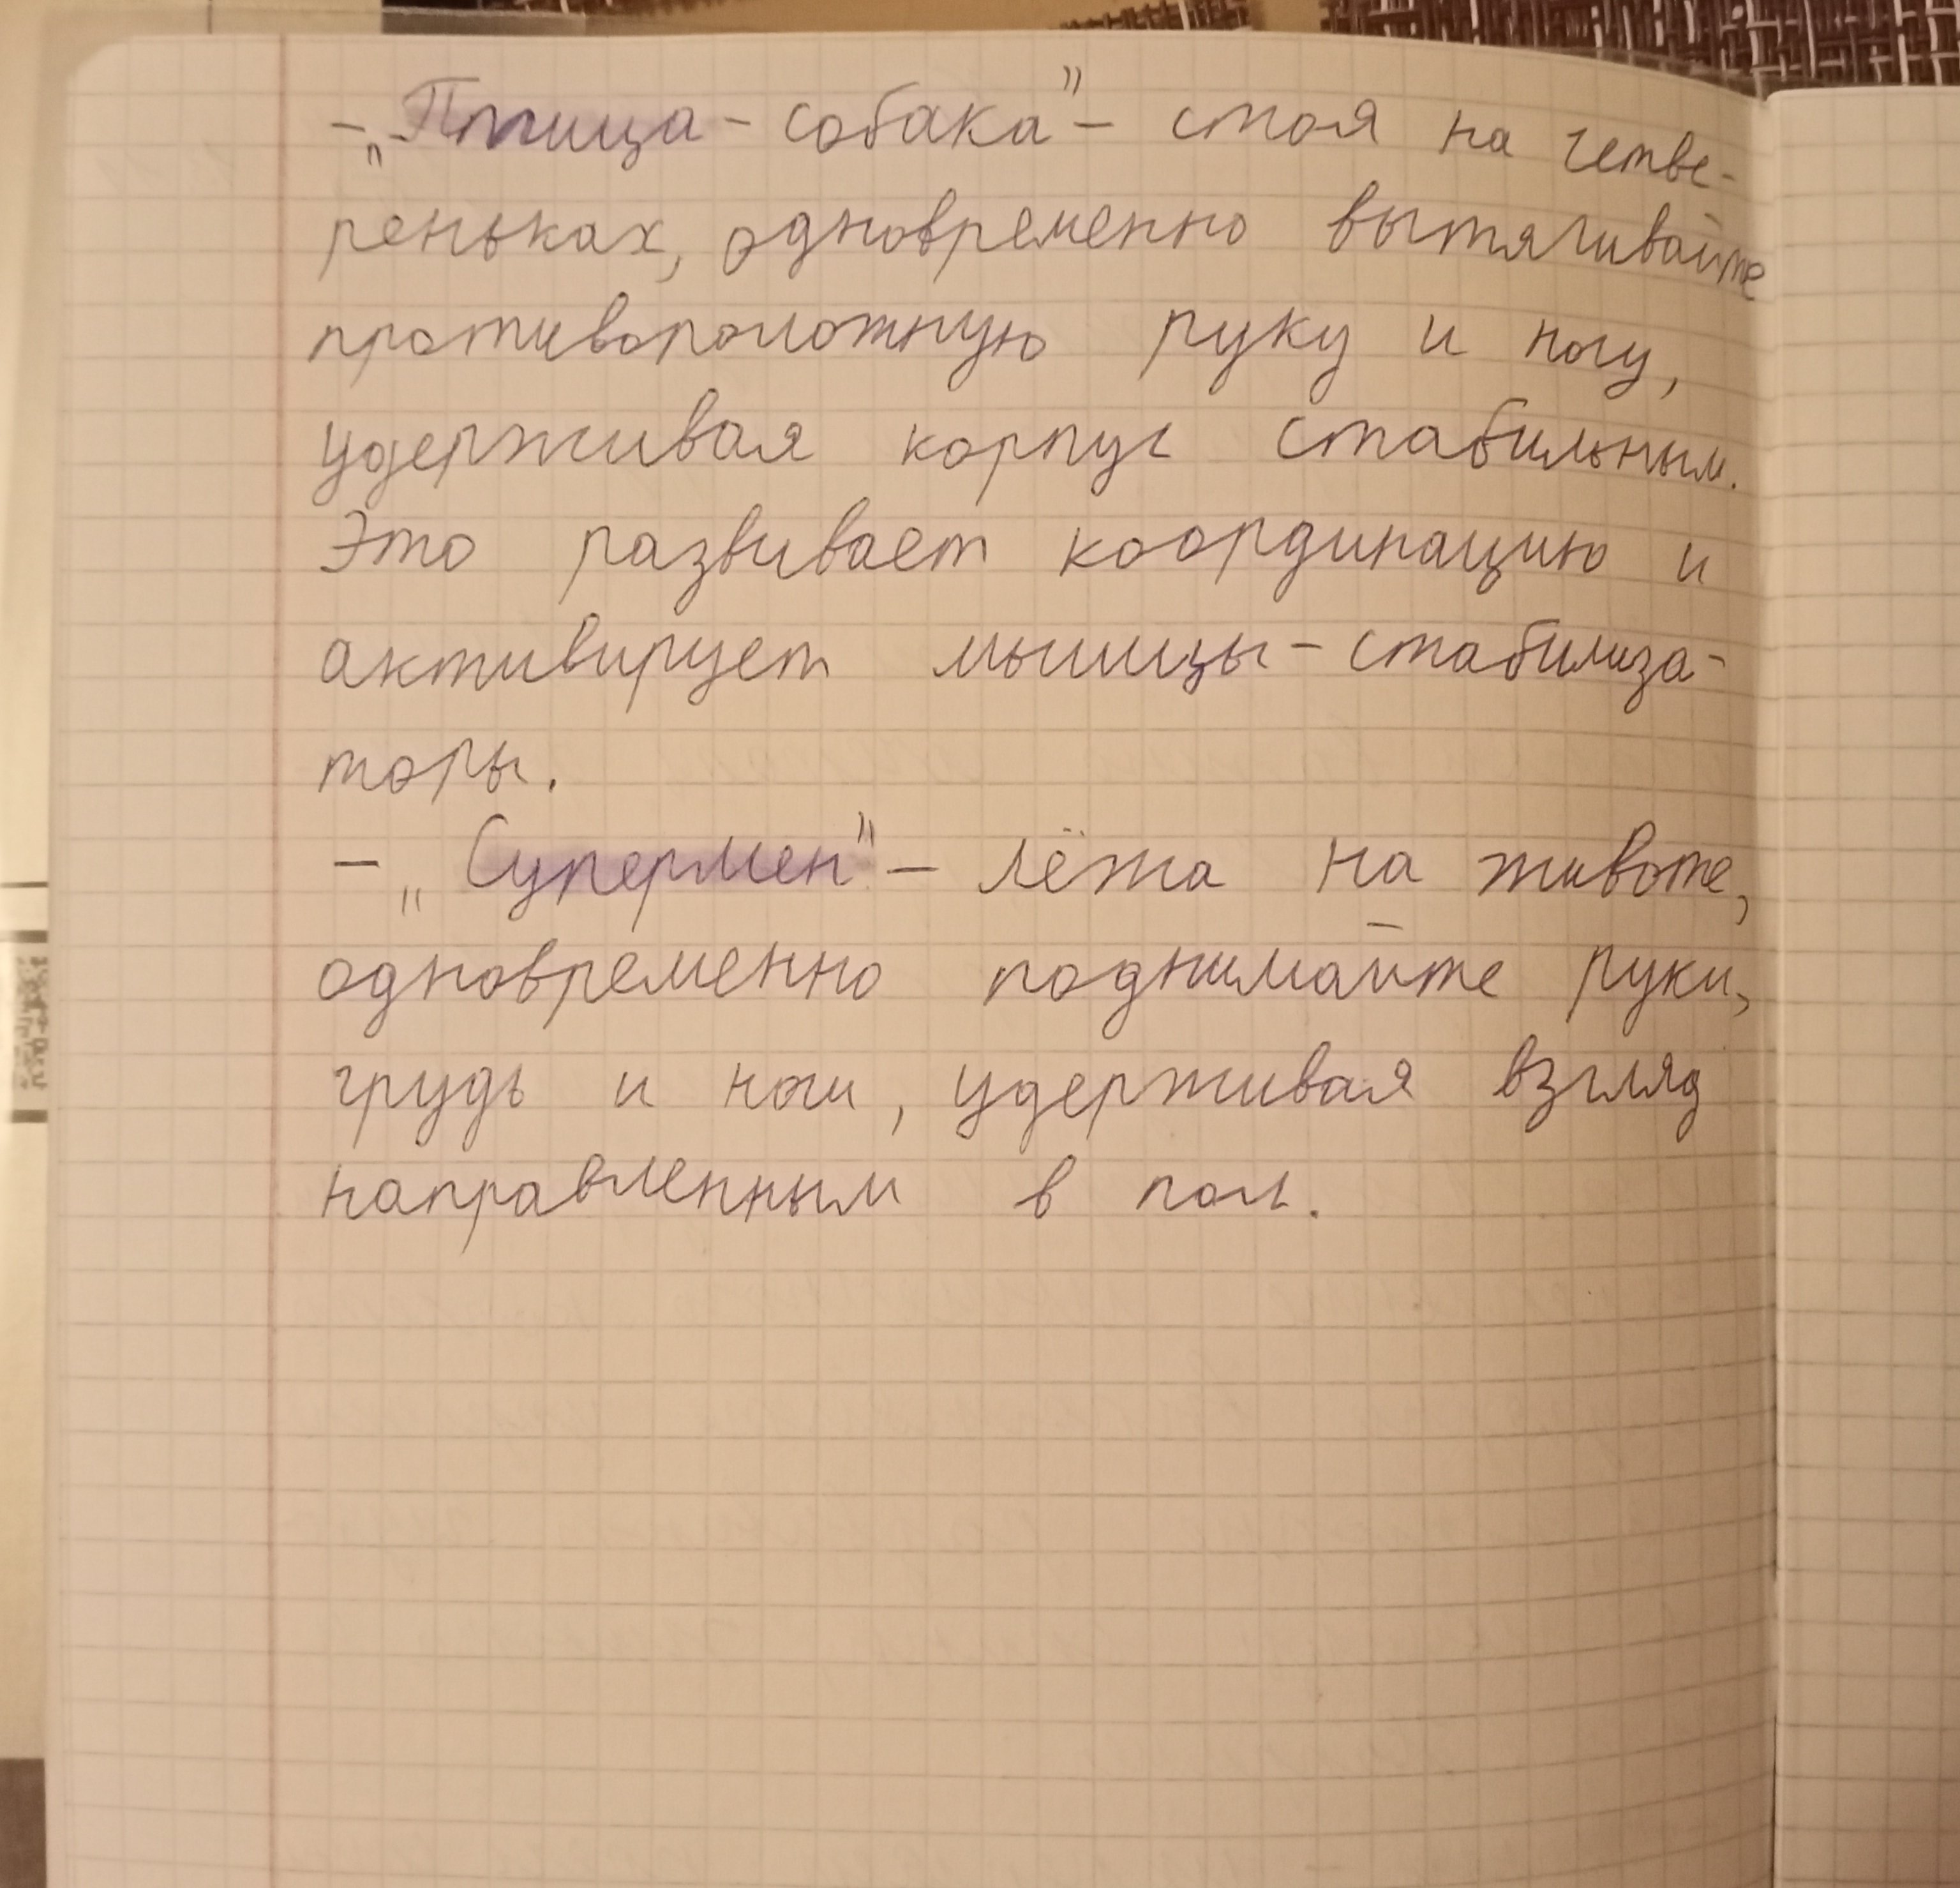 - „Птица - собака" - стоя на четве-
реньках, одновременно вытягивайте
противоположную руку и ногу,
удерживая корпус стабильным.
Это развивает координацию и
активирует мышцы - стабилиза-
торы.
- „Супермен" - лёжа на животе,
одновременно поднимайте руки,
грудь и ноги, удерживая взгляд
направленным в пол.